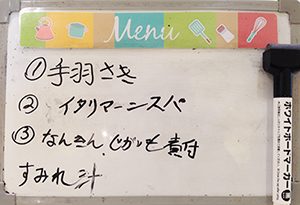 Menu
① 手羽さき
② イタリアーンスパ
③ なんきん、じがいも煮付
すみれ汁
ホワイトボードマーカー